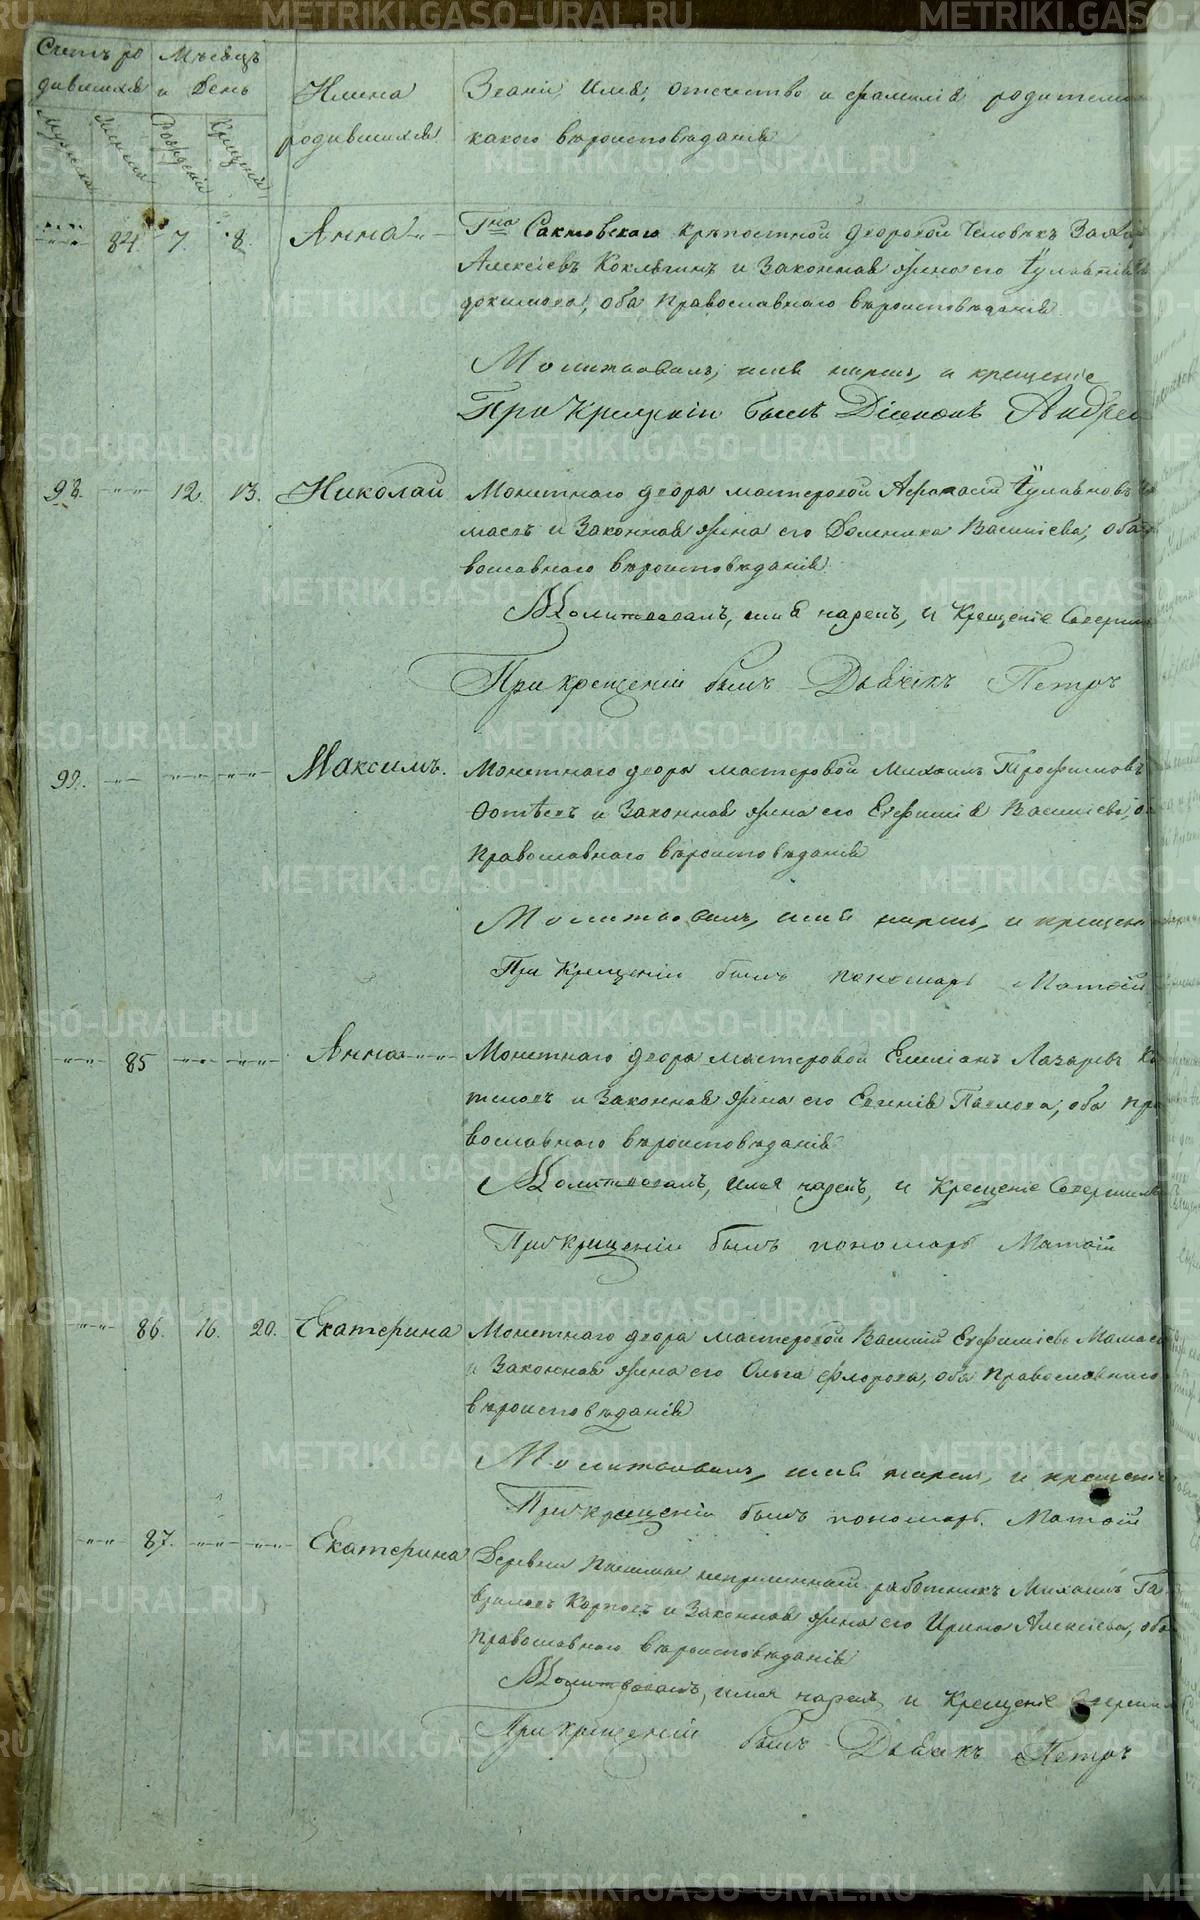 Счетъ ро
дившихся
Мѣсяцъ
и День
Имена
родившихся
Званіе, имя, отчество и фамилія родителе
какого вѣроисповѣданія
Мужеска
Женска
Рожденія
Крещенія
84. 7. 8. Анна Гна Крѣпостной дворовой человѣкъ
Алексіевъ и Законная жена его
оба Православнаго вѣроисповѣданія
Молитвовалъ, имя нарекъ, и крещеніе
При Крещеніи былъ Діаконъ Андрей
98. 12. 13. Николай Монетнаго двора мастеровой Афанасій
и Законная жена его Домника Васильева, оба
вославнаго вѣроисповѣданія
Молитвовалъ, имя нарекъ, и Крещеніе Соверши
При крещеніи былъ Дьячекъ Петръ
99. Максимъ. Монетнаго двора мастеровой Михаилъ Трофимовъ
и Законная жена его Евфимія Васильева,
Православнаго вѣроисповѣданія
Молитвовалъ, имя нарекъ, и крещен
При Крещеніи былъ пономарь Матѳій
85 Анна Монетнаго двора мастеровой Емиліанъ Лазаревъ
и Законная жена его Евгенія Павлова, оба пра
вославнаго вѣроисповѣданія
Молитвовалъ, имя нарекъ, и Крещеніе Совершилъ
При крещеніи былъ пономарь Матѳій
86. 16. 20. Екатерина Монетнаго двора мастеровой Василій Евфиміевъ
и Законная жена его Ольга Флорова, оба Православнаго
вѣроисповѣданія
Молитвовалъ, имя нарекъ, и крещеніе
При крещеніи былъ пономарь Матѳій
87. Екатерина Деревни непременный работникъ Михаилъ Га
вриловъ Карповъ и Законная жена его Ирина Алексіева, оба
православнаго вѣроисповѣданія
Молитвовалъ, имя нарекъ, и Крещеніе Соверши
При крещеніи былъ Дьячекъ Петръ
METRIKI.GASO-URAL.RU